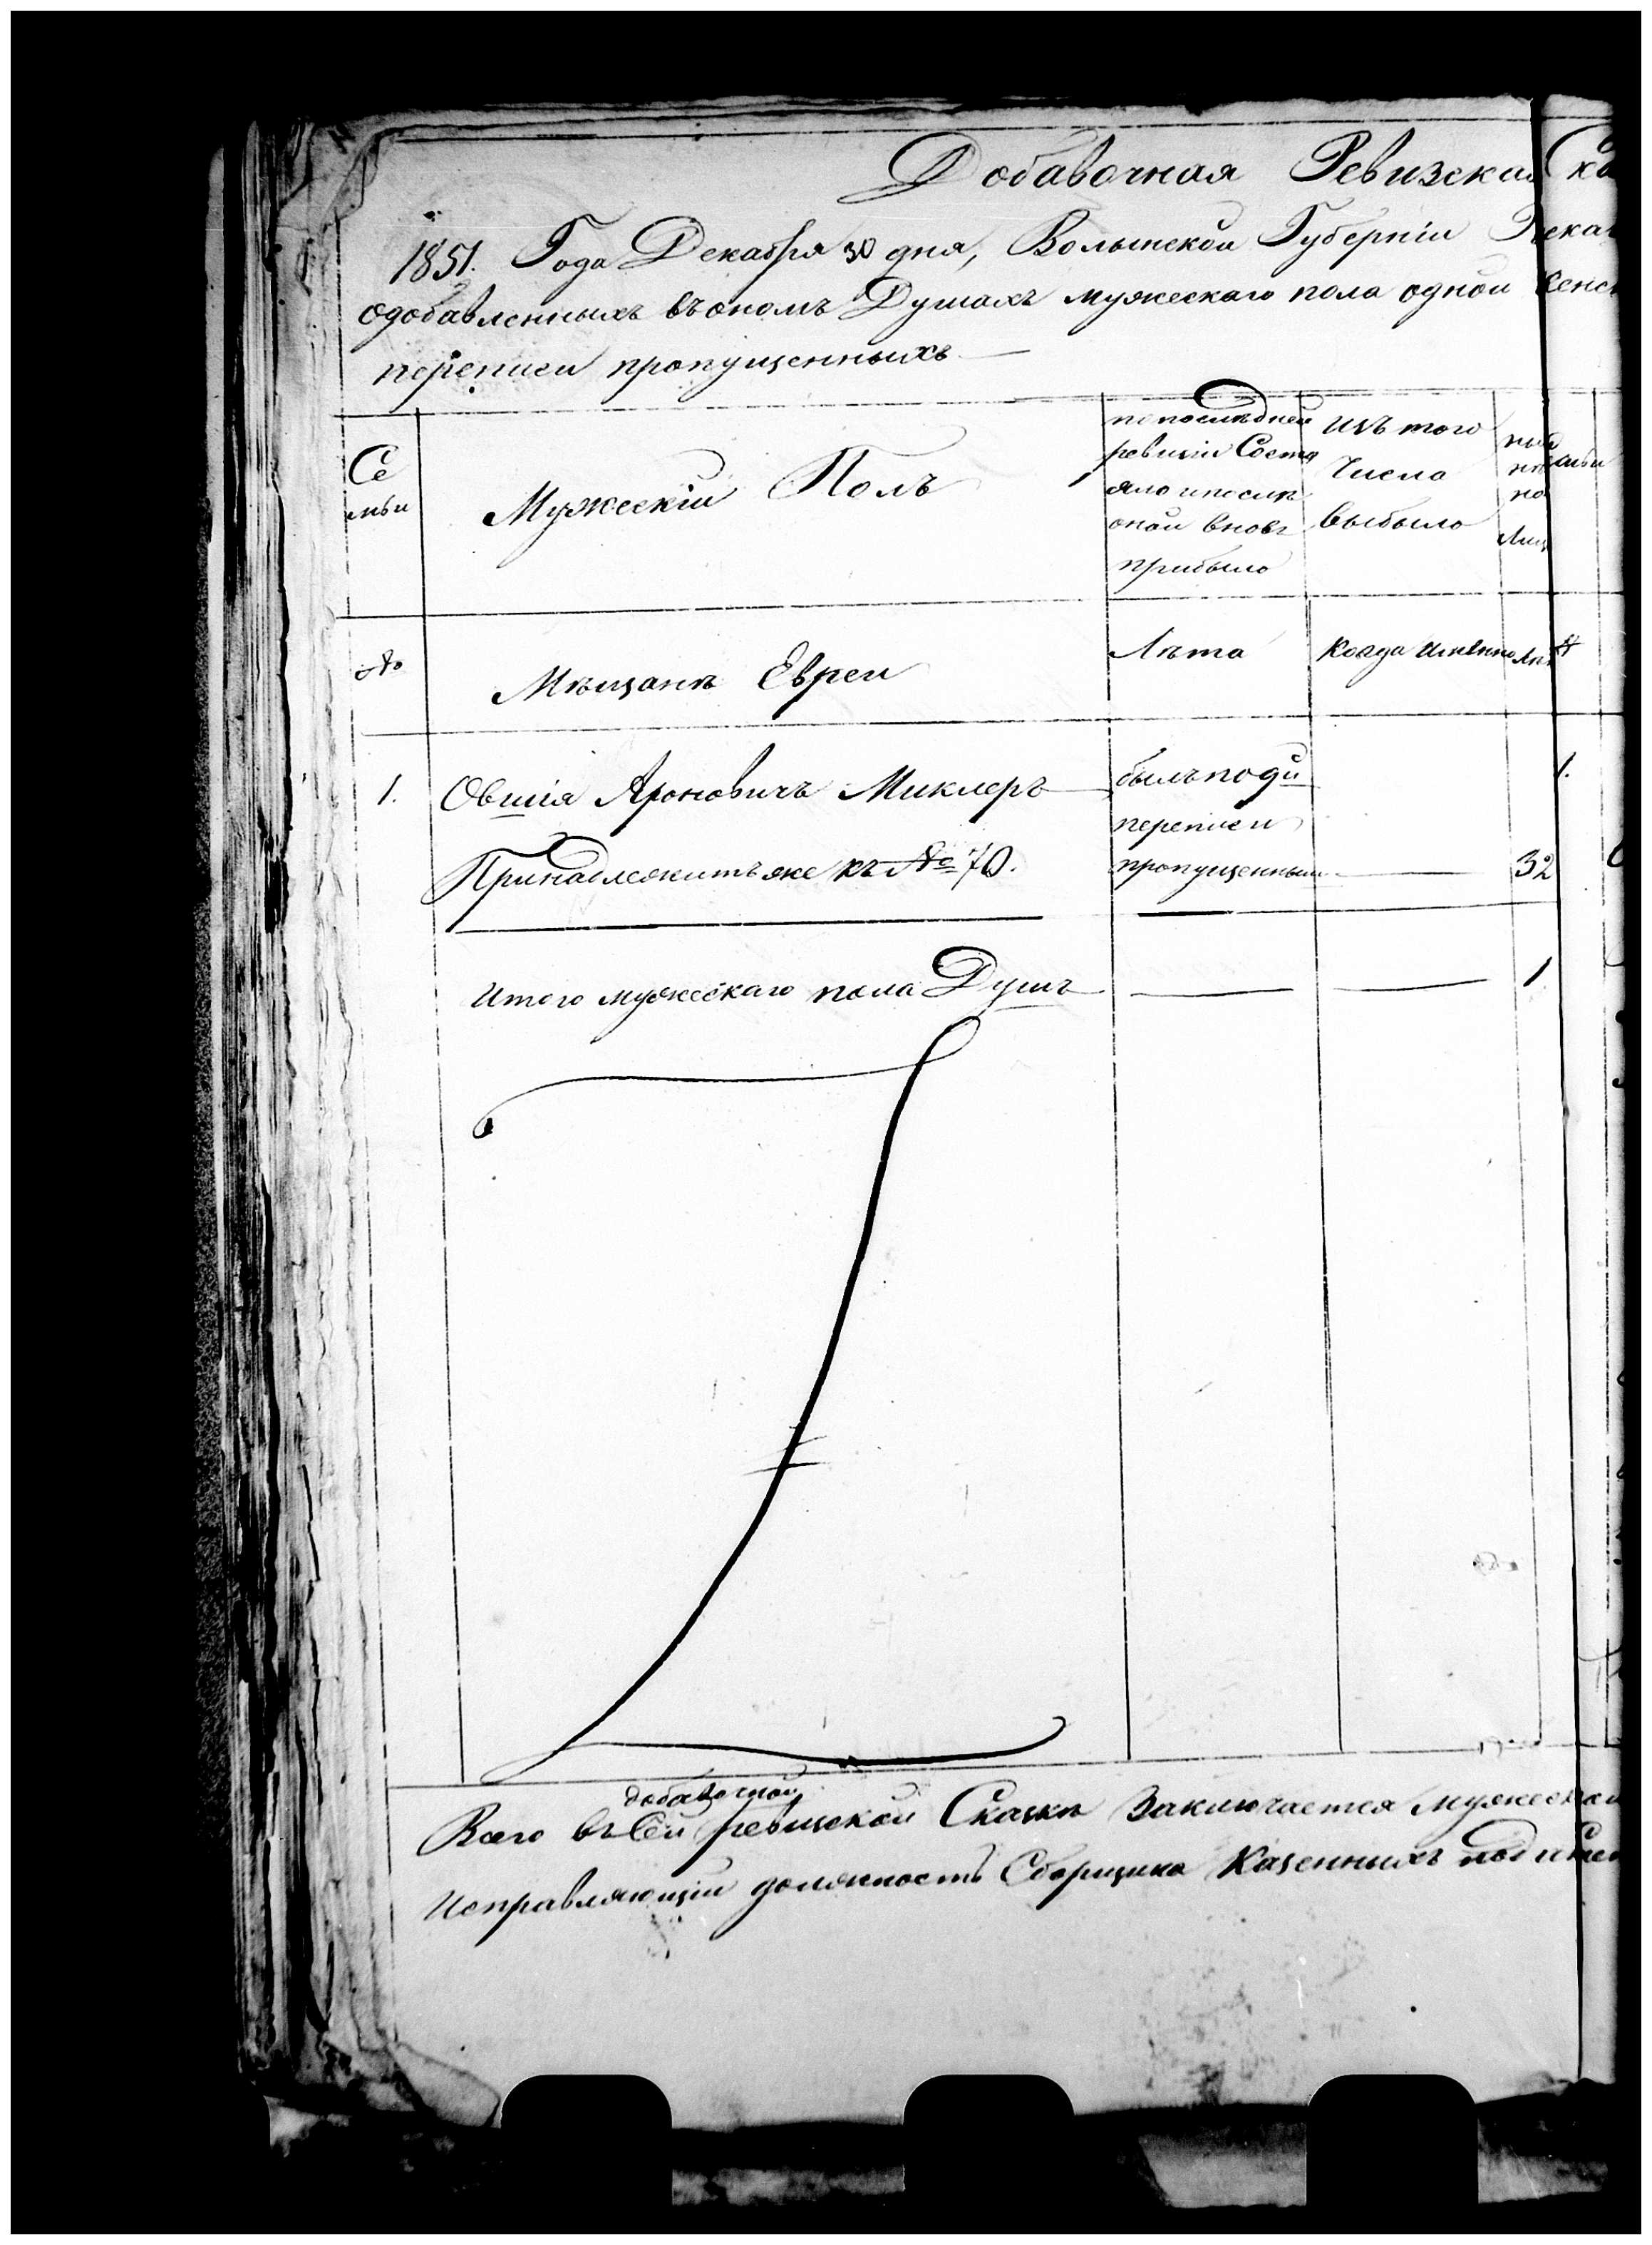 Добавочная Ревизская Ска
1851. Года Декабря 30 дня, Волынской Губерніи
одобавленныхъ въономъ Душахъ мужескаго пола одной женск
переписи пропущенныхъ
Се
мьи
Мужескій Полъ
по последней
ревизіи Состо
яло и послѣ
оной вновь
прибыло
Изъ того
Числа
выбыло
ны
нѣ
на
Лиц
мьи
№
Мѣщанъ Евреи
Лѣта
Когда именно
Лѣт
№
1.
Овшія Ароновичъ Миклеръ
былъ по 9й
1.
переписи
Принадлежитъ же къ № 70.
пропущеннымъ
32
Итого мужескаго пола Душъ
1
добавочной
Всего въ Сей ревизской Сказкѣ Заключается мужеска
Исправляющій должность Сборщика Казенныхъ податей